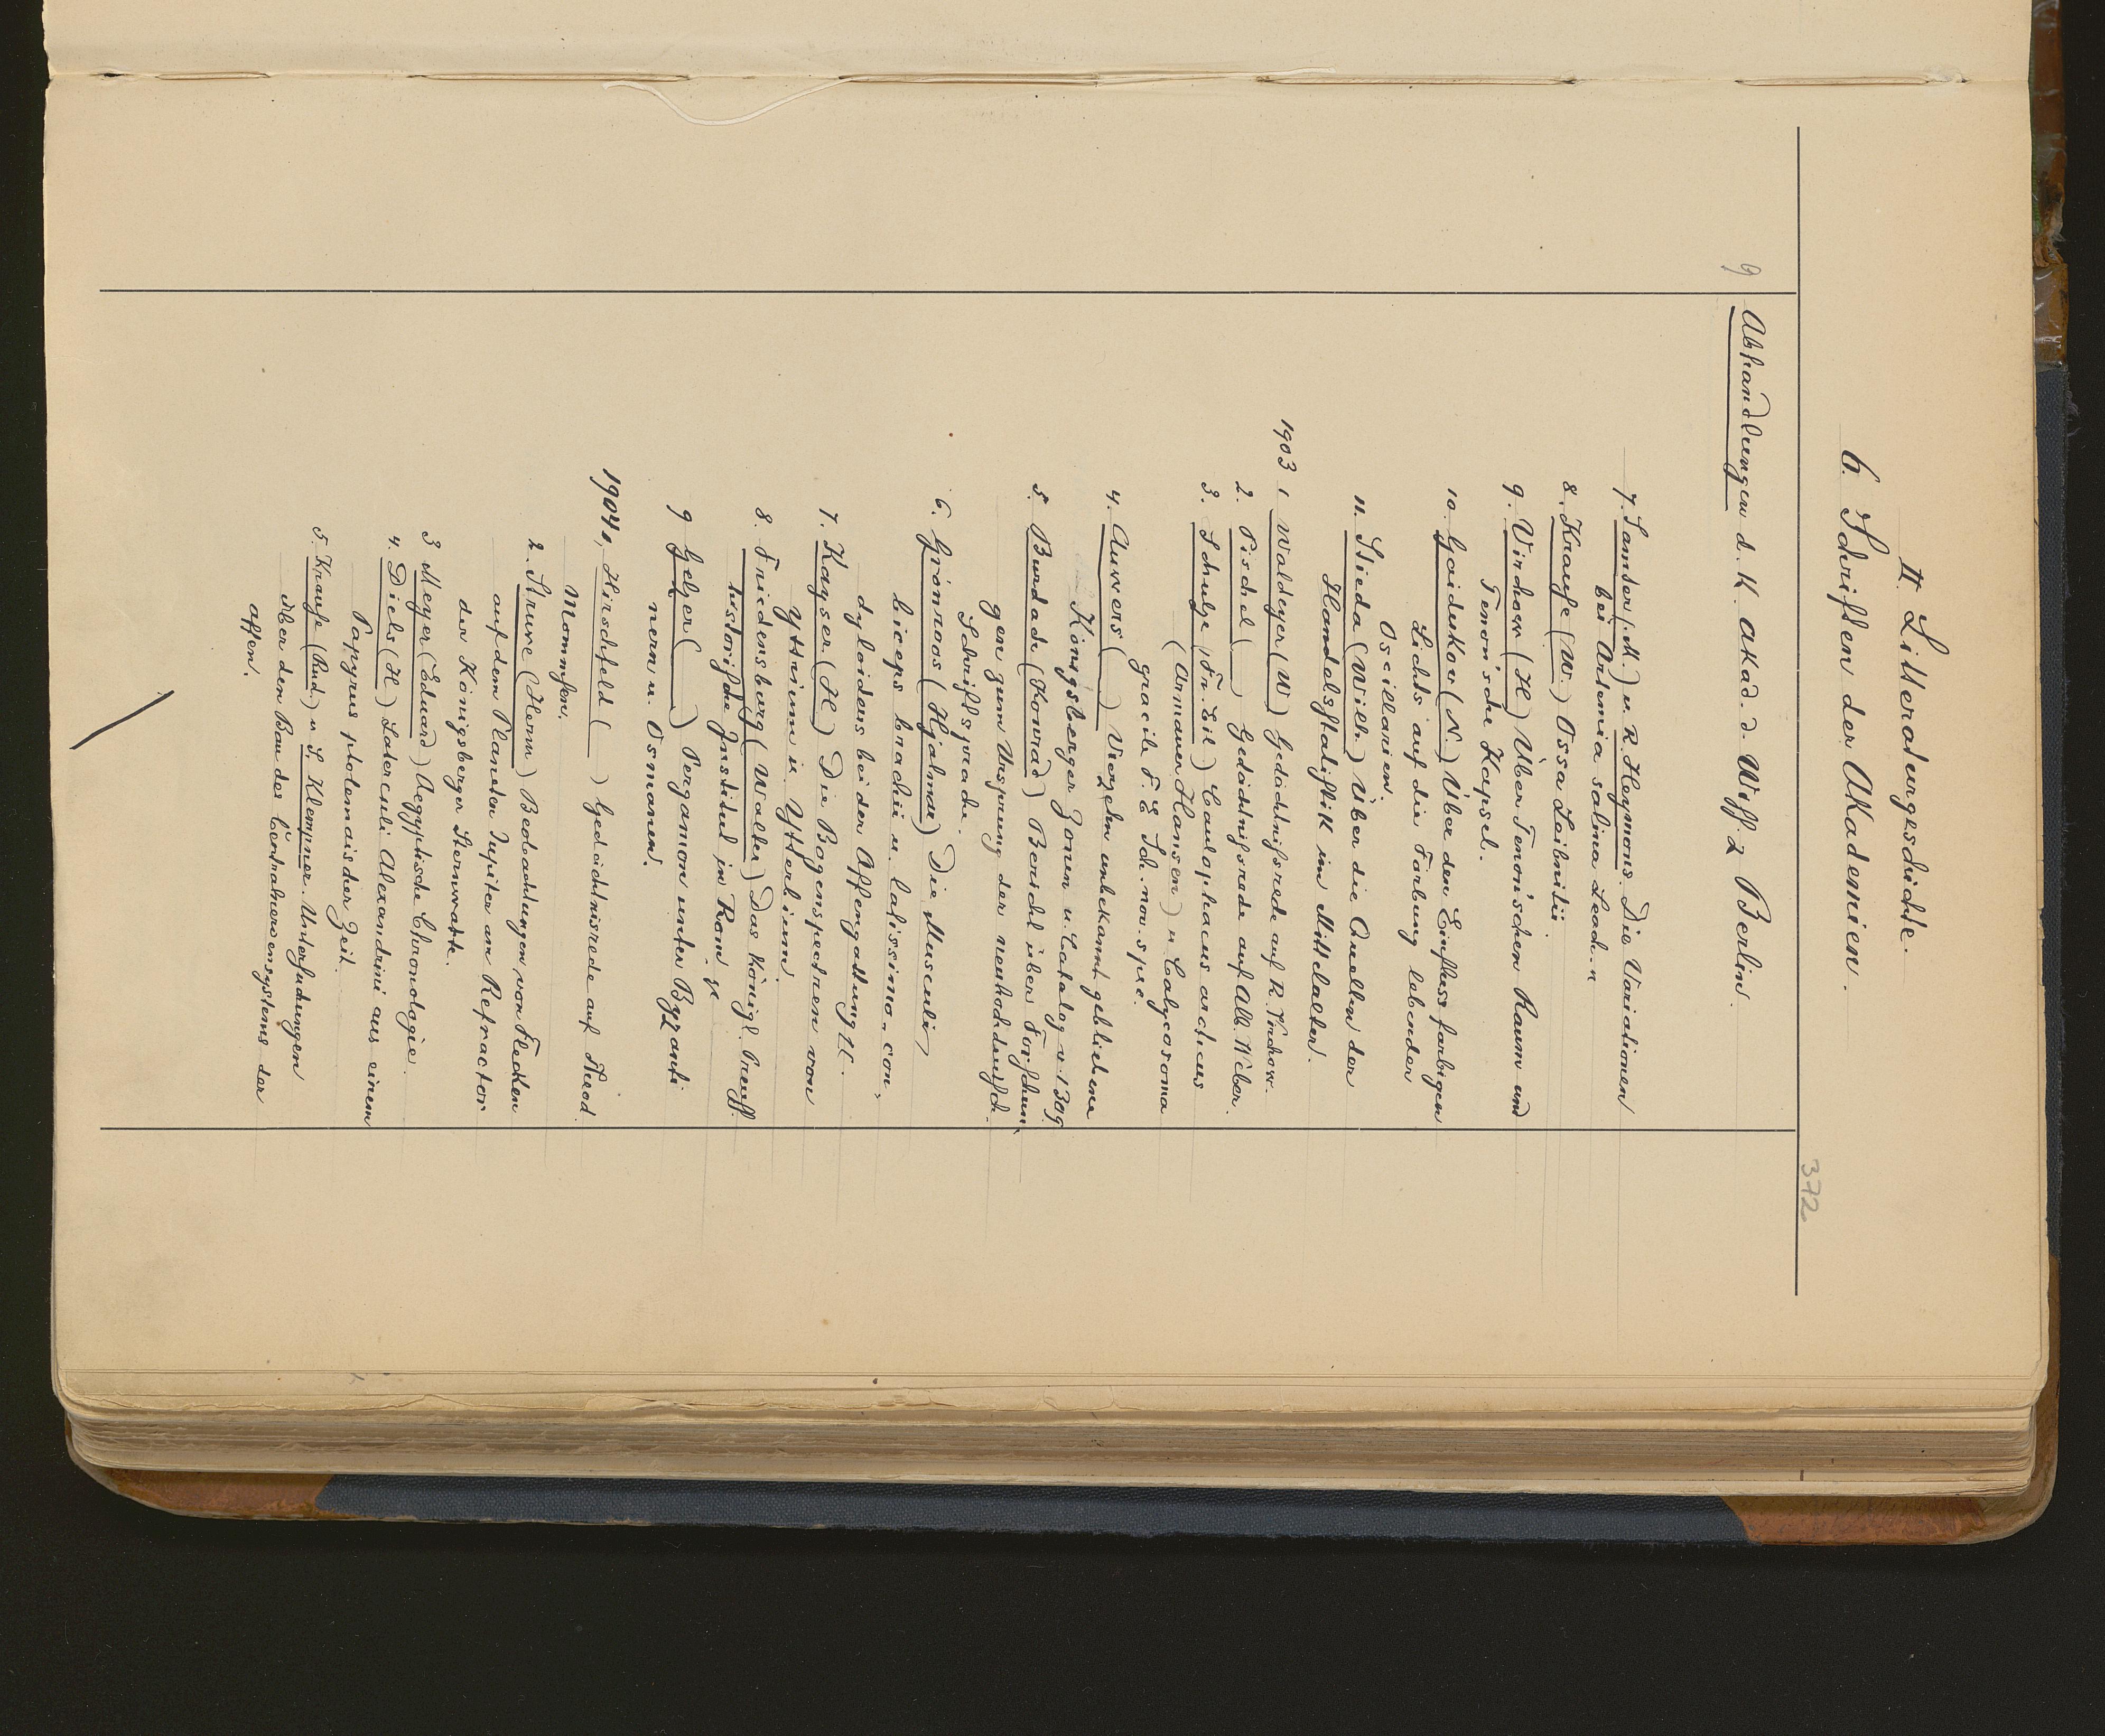 II. Litteraturgeschichte.
6. Schriften der Akademien.
372
9
Abhandlungen d. K. Akad. d. Wiss. z Berlin.
7. Samter (M.) u. R. Heymons. Die Variationen
bei Artemia salina Leach.
8. Krause (W.) Ossa Leibnitii.
9. Virchow (H) Über Tenon'schen Raum und
Tenon'sche Kapsel.
10. Gaidukov (N.) Über den Einfluss farbigen
Lichts auf die Färbung lebender
Oscillarien.
11. Stieda (Wilh.) Über die Quellen der
Handelsstatistik im Mittelalter.
1903 1 Waldeyer (W) Gedächtnißrede auf R. Virchow.
2. Pischel ( ) Gedächtnißrede auf Alb. Weber.
3. Schulze (Fr. Eil.) Caulophacus arcticus
(Armauer Hansen) u Calycosoma
gracile F. E. Sch. nov. spec.
4. Auwers ( ) Vierzehn unbekannt gebliebene
Königsberger Zonen u. Catalog v 1309
5. Burdach (Konrad) Bericht über Forschun,
gen zum Ursprung der neuhochdeutsch.
Schriftsprache.
6. Grönroos (Hjalmar) Die Musculi
biceps brachii u. latissimo-con,
dyloideus bei der Affengattung ꝛc.
7. Kayser (H) Die Bogenspectren von
Yttrium u Ytterbium.
8. Friedensburg (Walter) Das Königl. Preuss.
historische Institut in Rom.
9 Gelzer ( ) Pergamon unter Byzanti
nern u. Osmanen.
1904 1, Hirschfeld ( ) Gedächtnisrede auf Theod.
Mommsen.
2. Struve (Herm) Beobachtungen von Flecken
auf dem Planeten Jupiter am Refractor
der Königsberger Sternwarte.
3 Meyer (Eduard) Aegyptische Chronologie.
4. Diels (H) Laterculi Alexandrini aus einem
Papyrus ptolemaischer Zeit.
5. Krause (Rud.) u S. Klempner. Untersuchungen
über den Bau des Centralnervensystems der
Affen.